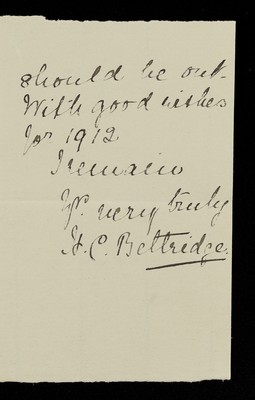 should be out.
With good wishes
for 1912
I remain
Yr. very truly
H. C. Bettridge.